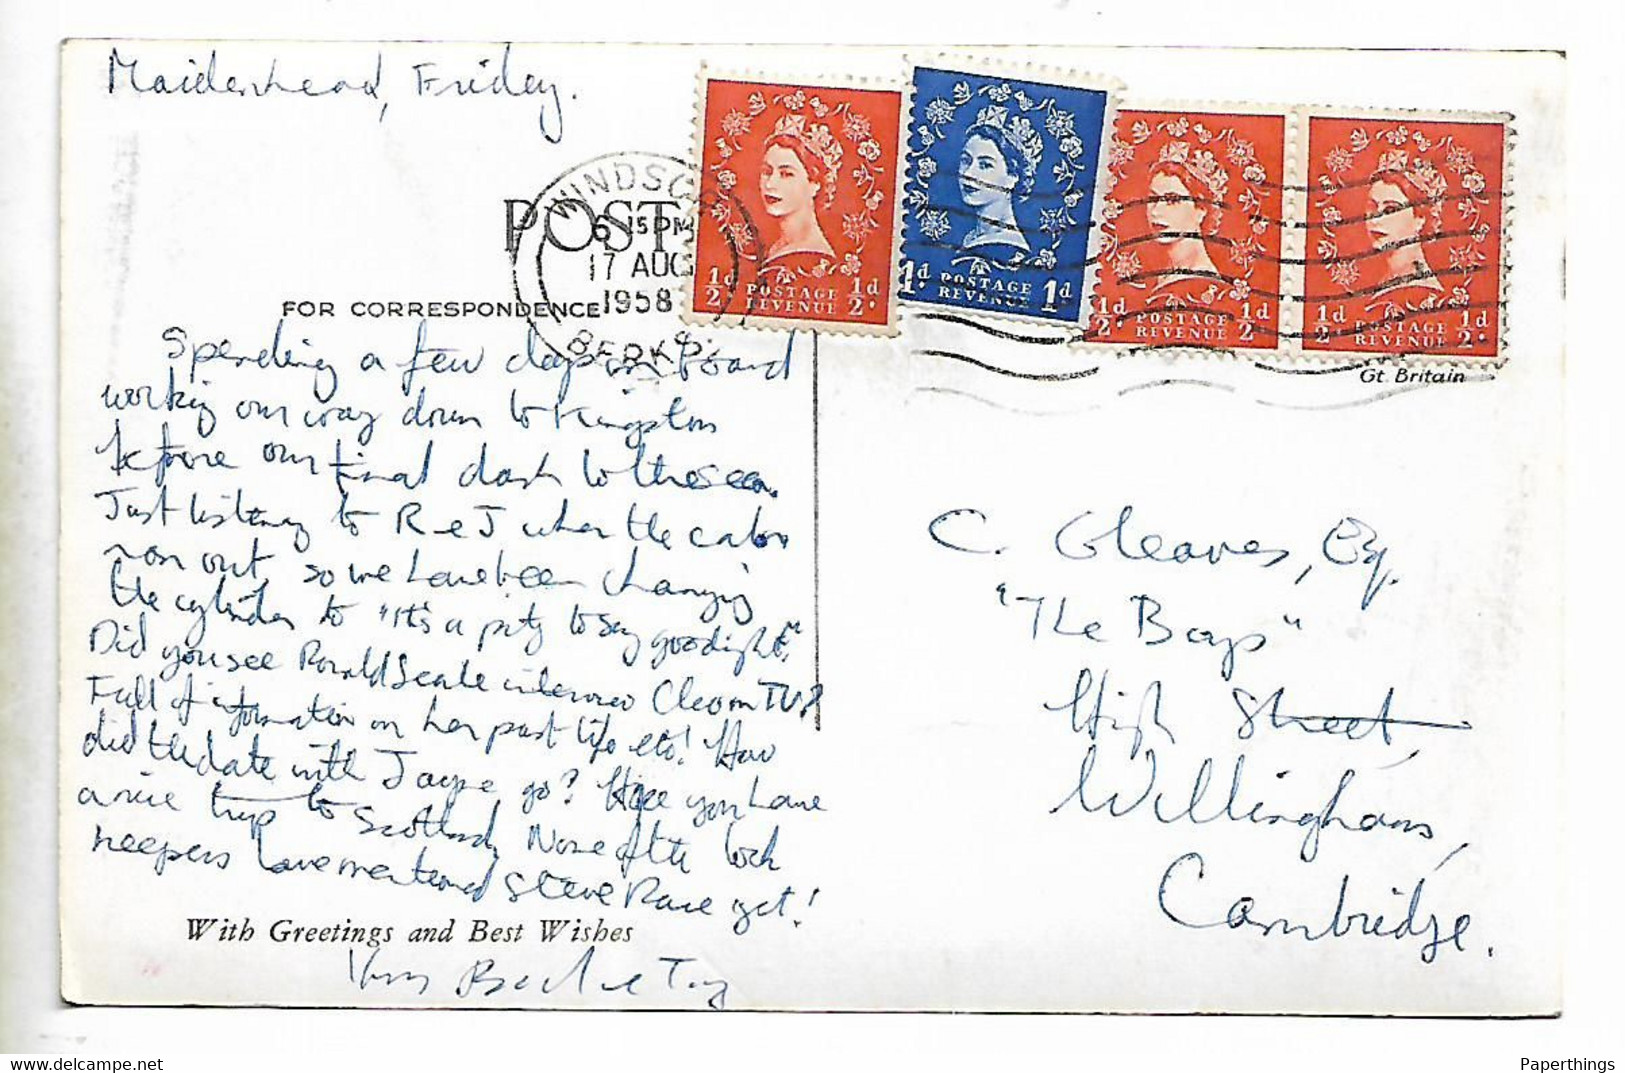 Maidenhead, Friday.
WINDSOR
6 15 PM
17 AUG
1958
BERKS.
POST
½d ½d
POSTAGE
REVENUE
1d. 1d
POSTAGE
REVENUE
½d. ½d
POSTAGE
REVENUE
½d ½d.
POSTAGE
REVENUE
Gt. Britain
FOR CORRESPONDENCE
Spending a few days on board
working our way down to Kingston
before our final dash to the sea.
Just listening to R & J when the
ran out so we have been changing
the cylinder to "It's a pity to say goodnight".
Did you see Ronald Searle interview Cleo on TV?
Full of information on her past life etc! How
did the date with Jayne go? Hope you have
a nice trip to Scotland. None of the lock
keepers have mentioned Steve Race yet!
With Greetings and Best Wishes
Tony
C. Gleaves, Esq.
"The Bays"
High Street,
Willingham,
Cambridge.
Paperthings